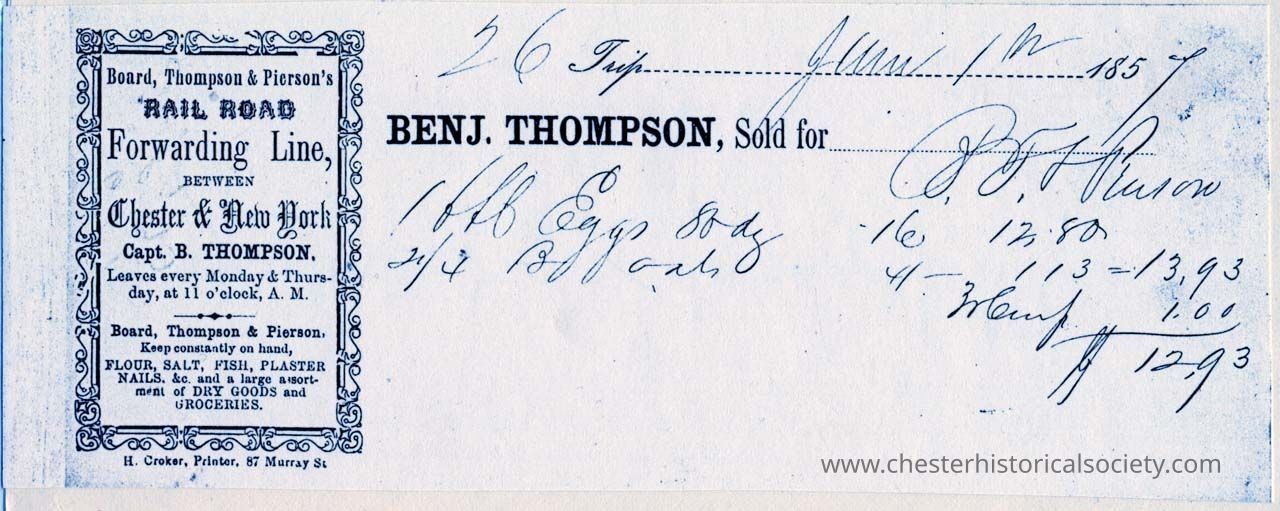 Board, Thompson & Pierson's
RAIL ROAD
Forwarding Line,
BETWEEN
Chester & New York
Capt. B. THOMPSON.
Leaves every Monday & Thurs-
day, at 11 o'clock, A. M.
Board, Thompson & Pierson,
Keep constantly on hand,
FLOUR, SALT, FISH, PLASTER
NAILS, &c. and a large assort-
ment of DRY GOODS and
GROCERIES.
H. Croker, Printer, 87 Murray St
26 Trip June 1st 1857
BENJ. THOMPSON, Sold for
Pierson
1 bbl Eggs 80 dz 16 12.80
113 = 13,93
1.00
$ 12,93
www.chesterhistoricalsociety.com